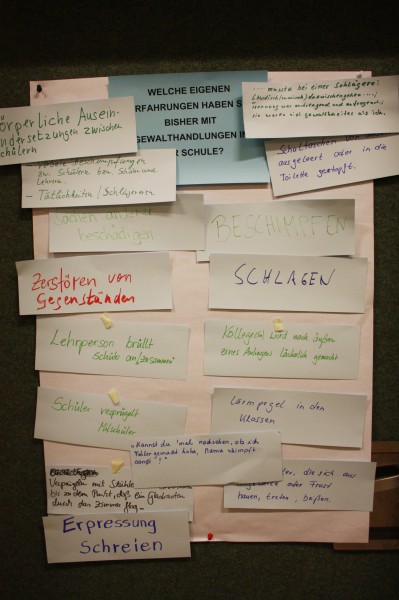 WELCHE EIGENEN
ERFAHRUNGEN HABEN S
BISHER MIT
GEWALTHANDLUNGEN IN
SCHULE?
körperliche Ausein-
andersetzungen zwischen
Schülern
zw. Schülern bzw. Schüler und
Lehrern.
- Tätlichkeiten / Schlägereien
musste bei einer Schlägerei
Schultaschen
ausgeleert oder in die
Toilette gestopft.
Sachen anderer
beschädigen
BESCHIMPFEN
Zerstören von
Gegenständen
SCHLAGEN
Lehrperson brüllt
Schüler an/zusammen
Kollege(in) wird nach außen
eines Anliegens lächerlich gemacht
Schüler verprügelt
Mitschüler
Lärmpegel in den
Klassen
"Kannst du 'mal nachsehen, ob ich
Fehler gemacht habe, Mama schimpft
sonst,"
Verprügeln mit Stühlen
bis zu dem Punkt, daß ein
durch das Zimmer flog.
die sich aus
oder Frust
hauen, treten, beißen.
Erpressung
Schreien